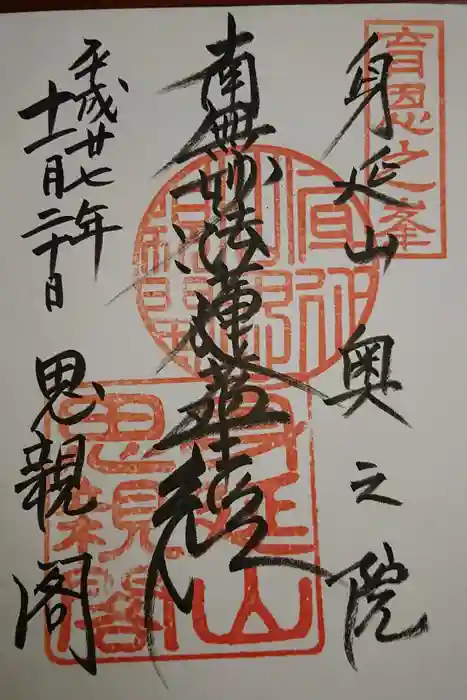 身延山奥之院
南無妙法蓮華経
平成廿七年
十一月二十日
思親閣
育恩之峯
身延山
思親閣